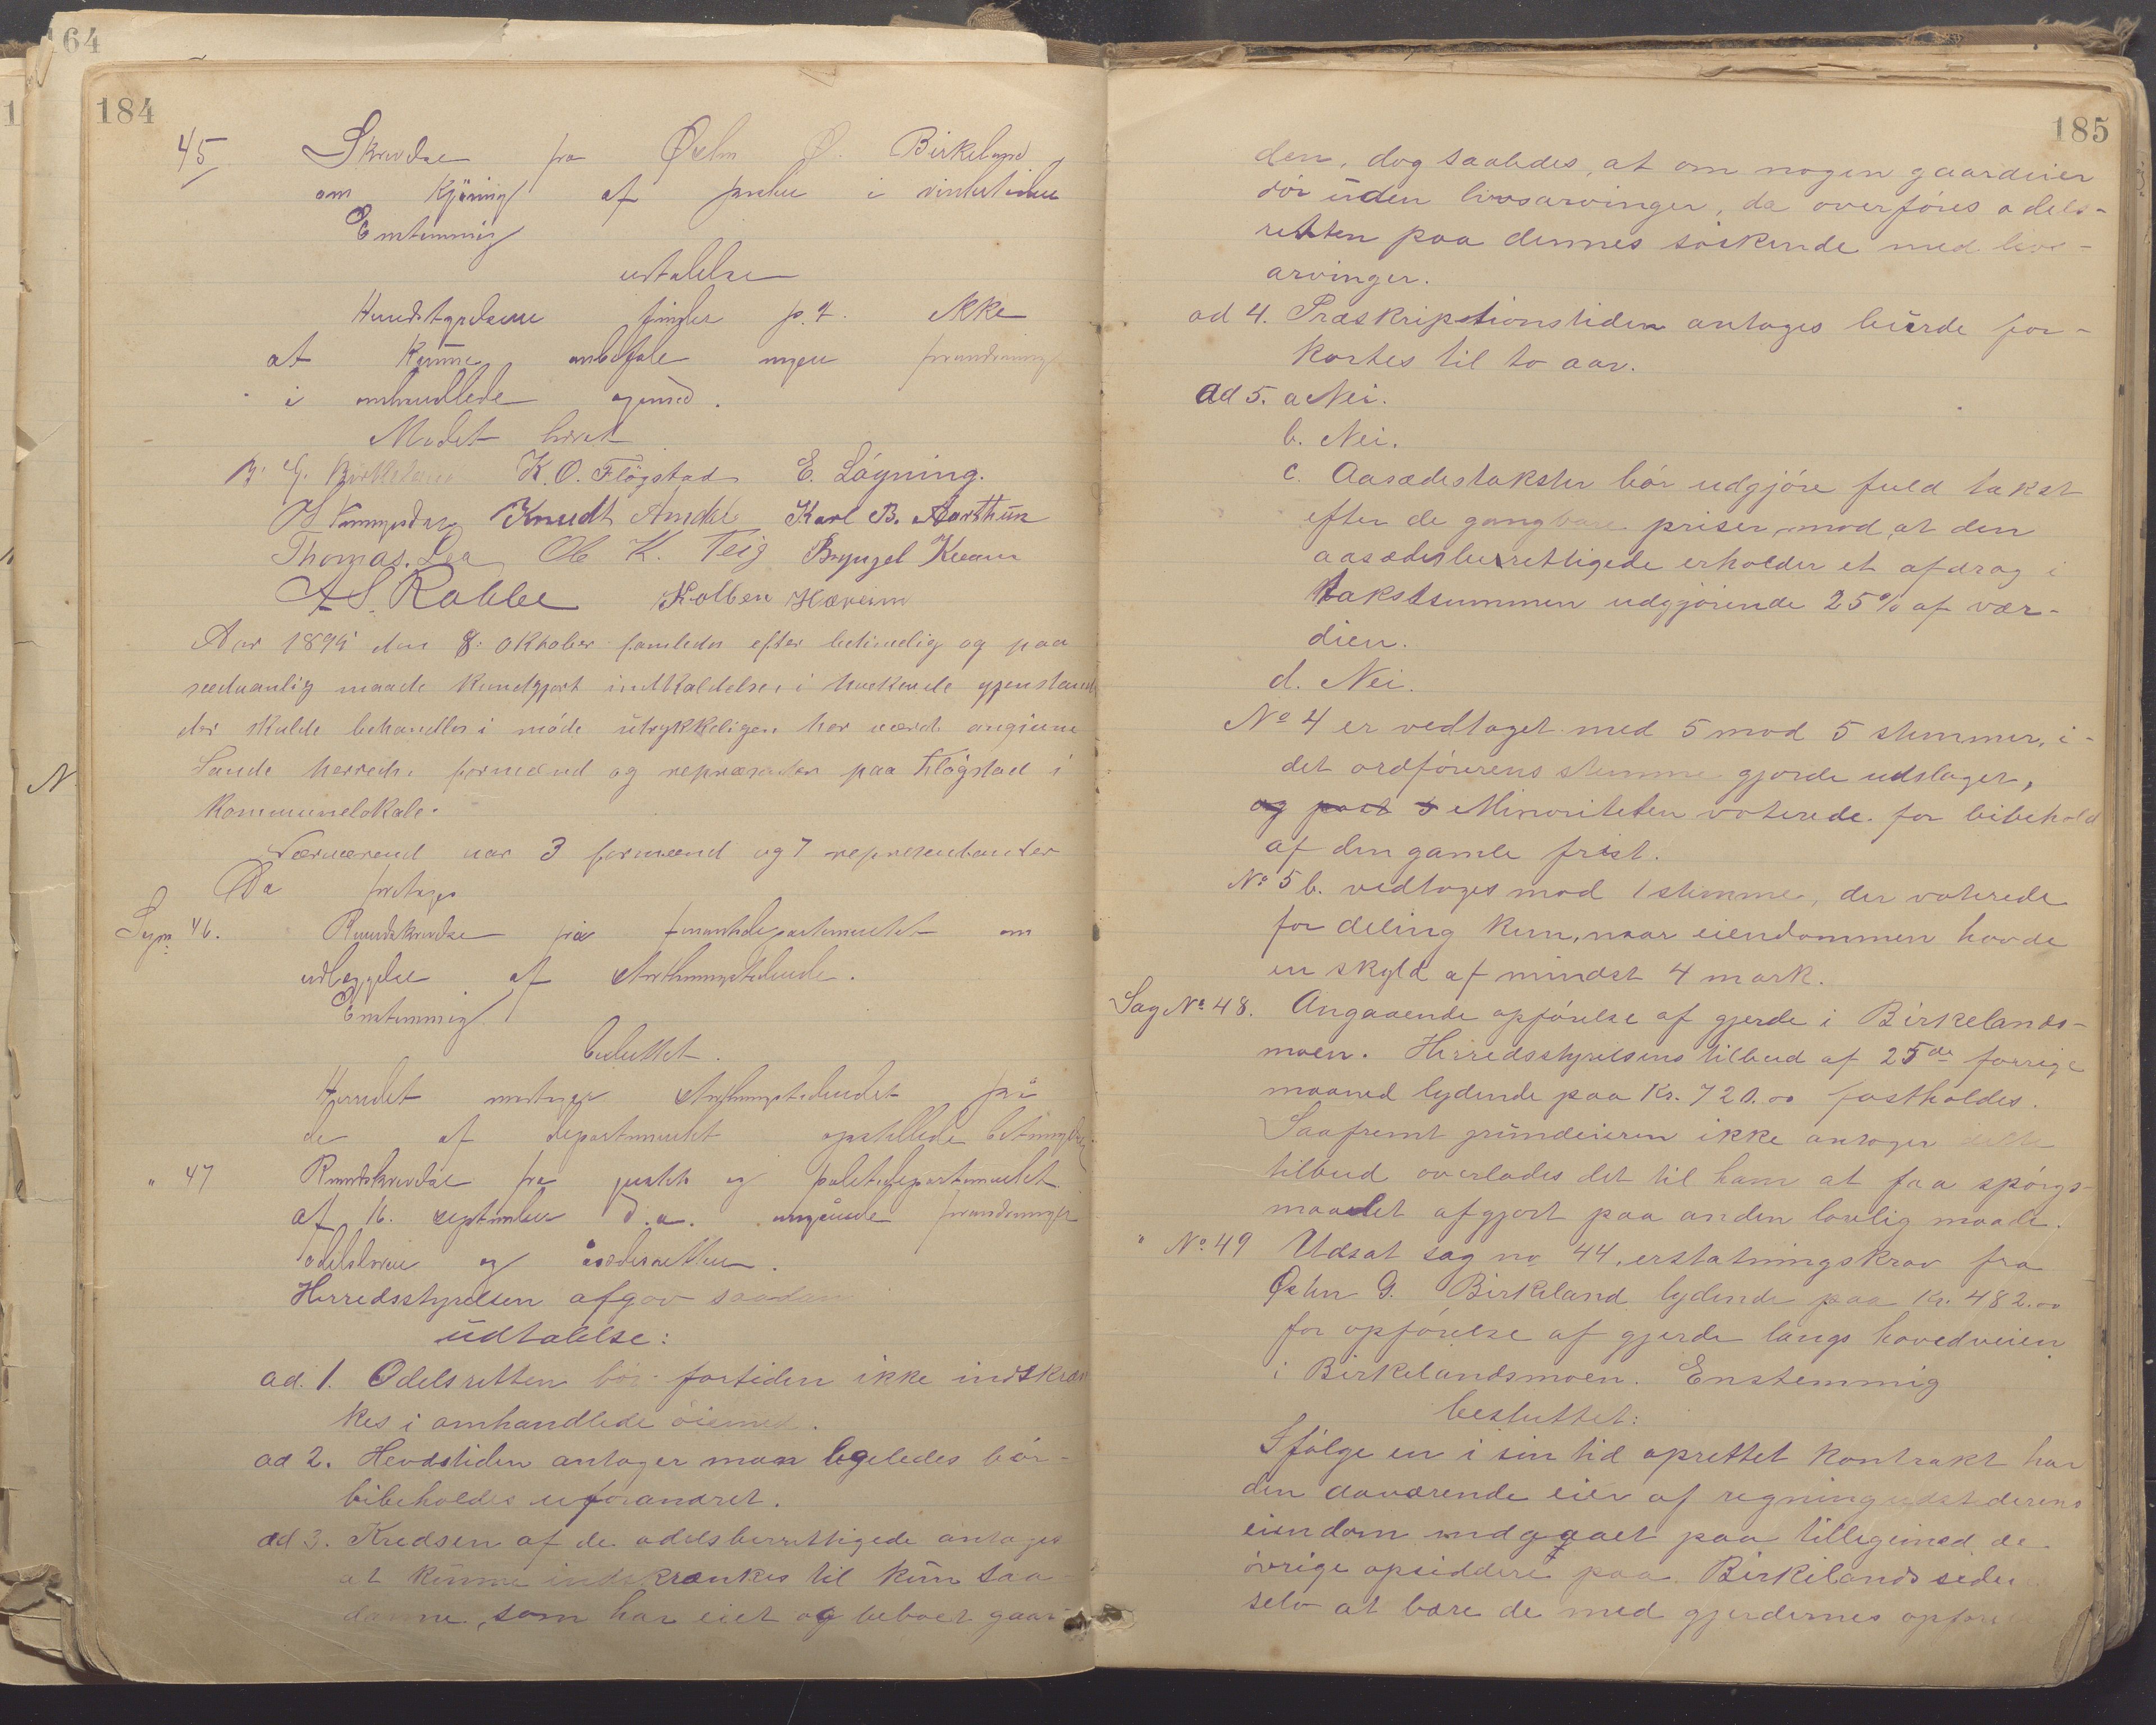 164
184
45 Skrivelse fra Østen Ø. Birkeland
om kjøring af præster i vintertiden
Enstemmig
udtalelse
Herredstyrelsen finder p. t. ikke
at kunne anbefale nogen forandring
i omhandlede øjemed.
Mødet hævet
B. G. Birkeland K. O. Flögstad E. Lögning.
Knudt Amdal Karl B. Aarthün
Thomas. Lea Ole K. Teig Bryngel Kvam
A S. Rabbe Kolben Hæreim
Aar 1895 den 8. Oktober samledes efter betimelig og paa
sædvanlig maade kundgjort indkaldelse, i hvilkende gjenstande
der skulde behandles i möde üdtrykkeligen har været angivne
Saude herreds formænd og repræsentanter paa Flögstad i
kommunelokale.
Nærværend var 3 formænd og 7 repræsentanter
Da foretages
Sag no 46. Rundskrivelse fra finantsdepartementet om
udlæggelse af Amtmugstedende.
Enstemmig
besluttet.
Herredet modtager på
de af departementet opstillede betingelser.
" 47 Rundskrivelse fra justits og politidepartementet
af 16. september d. a. angående forandringer
i odelsloven og åsædesretten.
Herredsstyrelsen afgav saadan
üdtalelse:
ad. 1. Odelsretten bör fortiden ikke indskræn
kes i omhandlede öiemed.
ad 2. Hevdstiden antager man ligeledes bör
bibeholdes uforandret.
ad 3. Kredsen af de odelsberettigede antages
at künne indskrænkes til kün saa
danne, som har eiet og beboet gaar-
185
den, dog saaledes, at om nogen gaardeier
dör üden livsarvinger, da overföres odels-
retten paa dennes söskende med livs-
arvinger.
ad 4. Præskriptionstiden antages bürde for-
kortes til to aar.
ad 5. a Nei.
b. Nei.
c. Aasædestaksten bör udgjöre fuld takst
efter de gangbare priser, mod at den
aasædesberettigede erholder et afdrag i
takstsummen udgjörende 25 % af vær-
dien.
d. Nei.
No 4 er vedtaget med 5 mod 5 stemmer, i-
det ordförerens stemme gjorde udslaget,
og post 5 Minoriteten voterede for bibehold
af den gamle frist.
No 5 b. vedtages mod 1 stemme, der voterede
for deling kun, naar eiendommen havde
en skyld af mindst 4 mark.
Sag No 48. Angaaende opförelse af gjerde i Birkelands-
moen. Herredsstyrelsens tilbud af 25de forrige
maaned lydende paa Kr. 720.00 fastholdes.
Saafremt grundeieren ikke antager dette
tilbud overlades det til ham at faa spörgs-
maalet afgjort paa anden lovlig maade.
" No 49 Udsat sag no 44, erstatningskrav fra
Østen G. Birkeland lydende paa Kr. 482.00
for opförelse af gjerde langs hovedveien
i Birkelandsmoen. Enstemmig
besluttet:
Ifölge en i sin tid oprettet kontrakt har
den daværende eier af regningudstederens
eiendom indgaaet paa tilligemed de
övrige opsiddere paa Birkelands siden
selv at bære de med gjerdernes opförelse